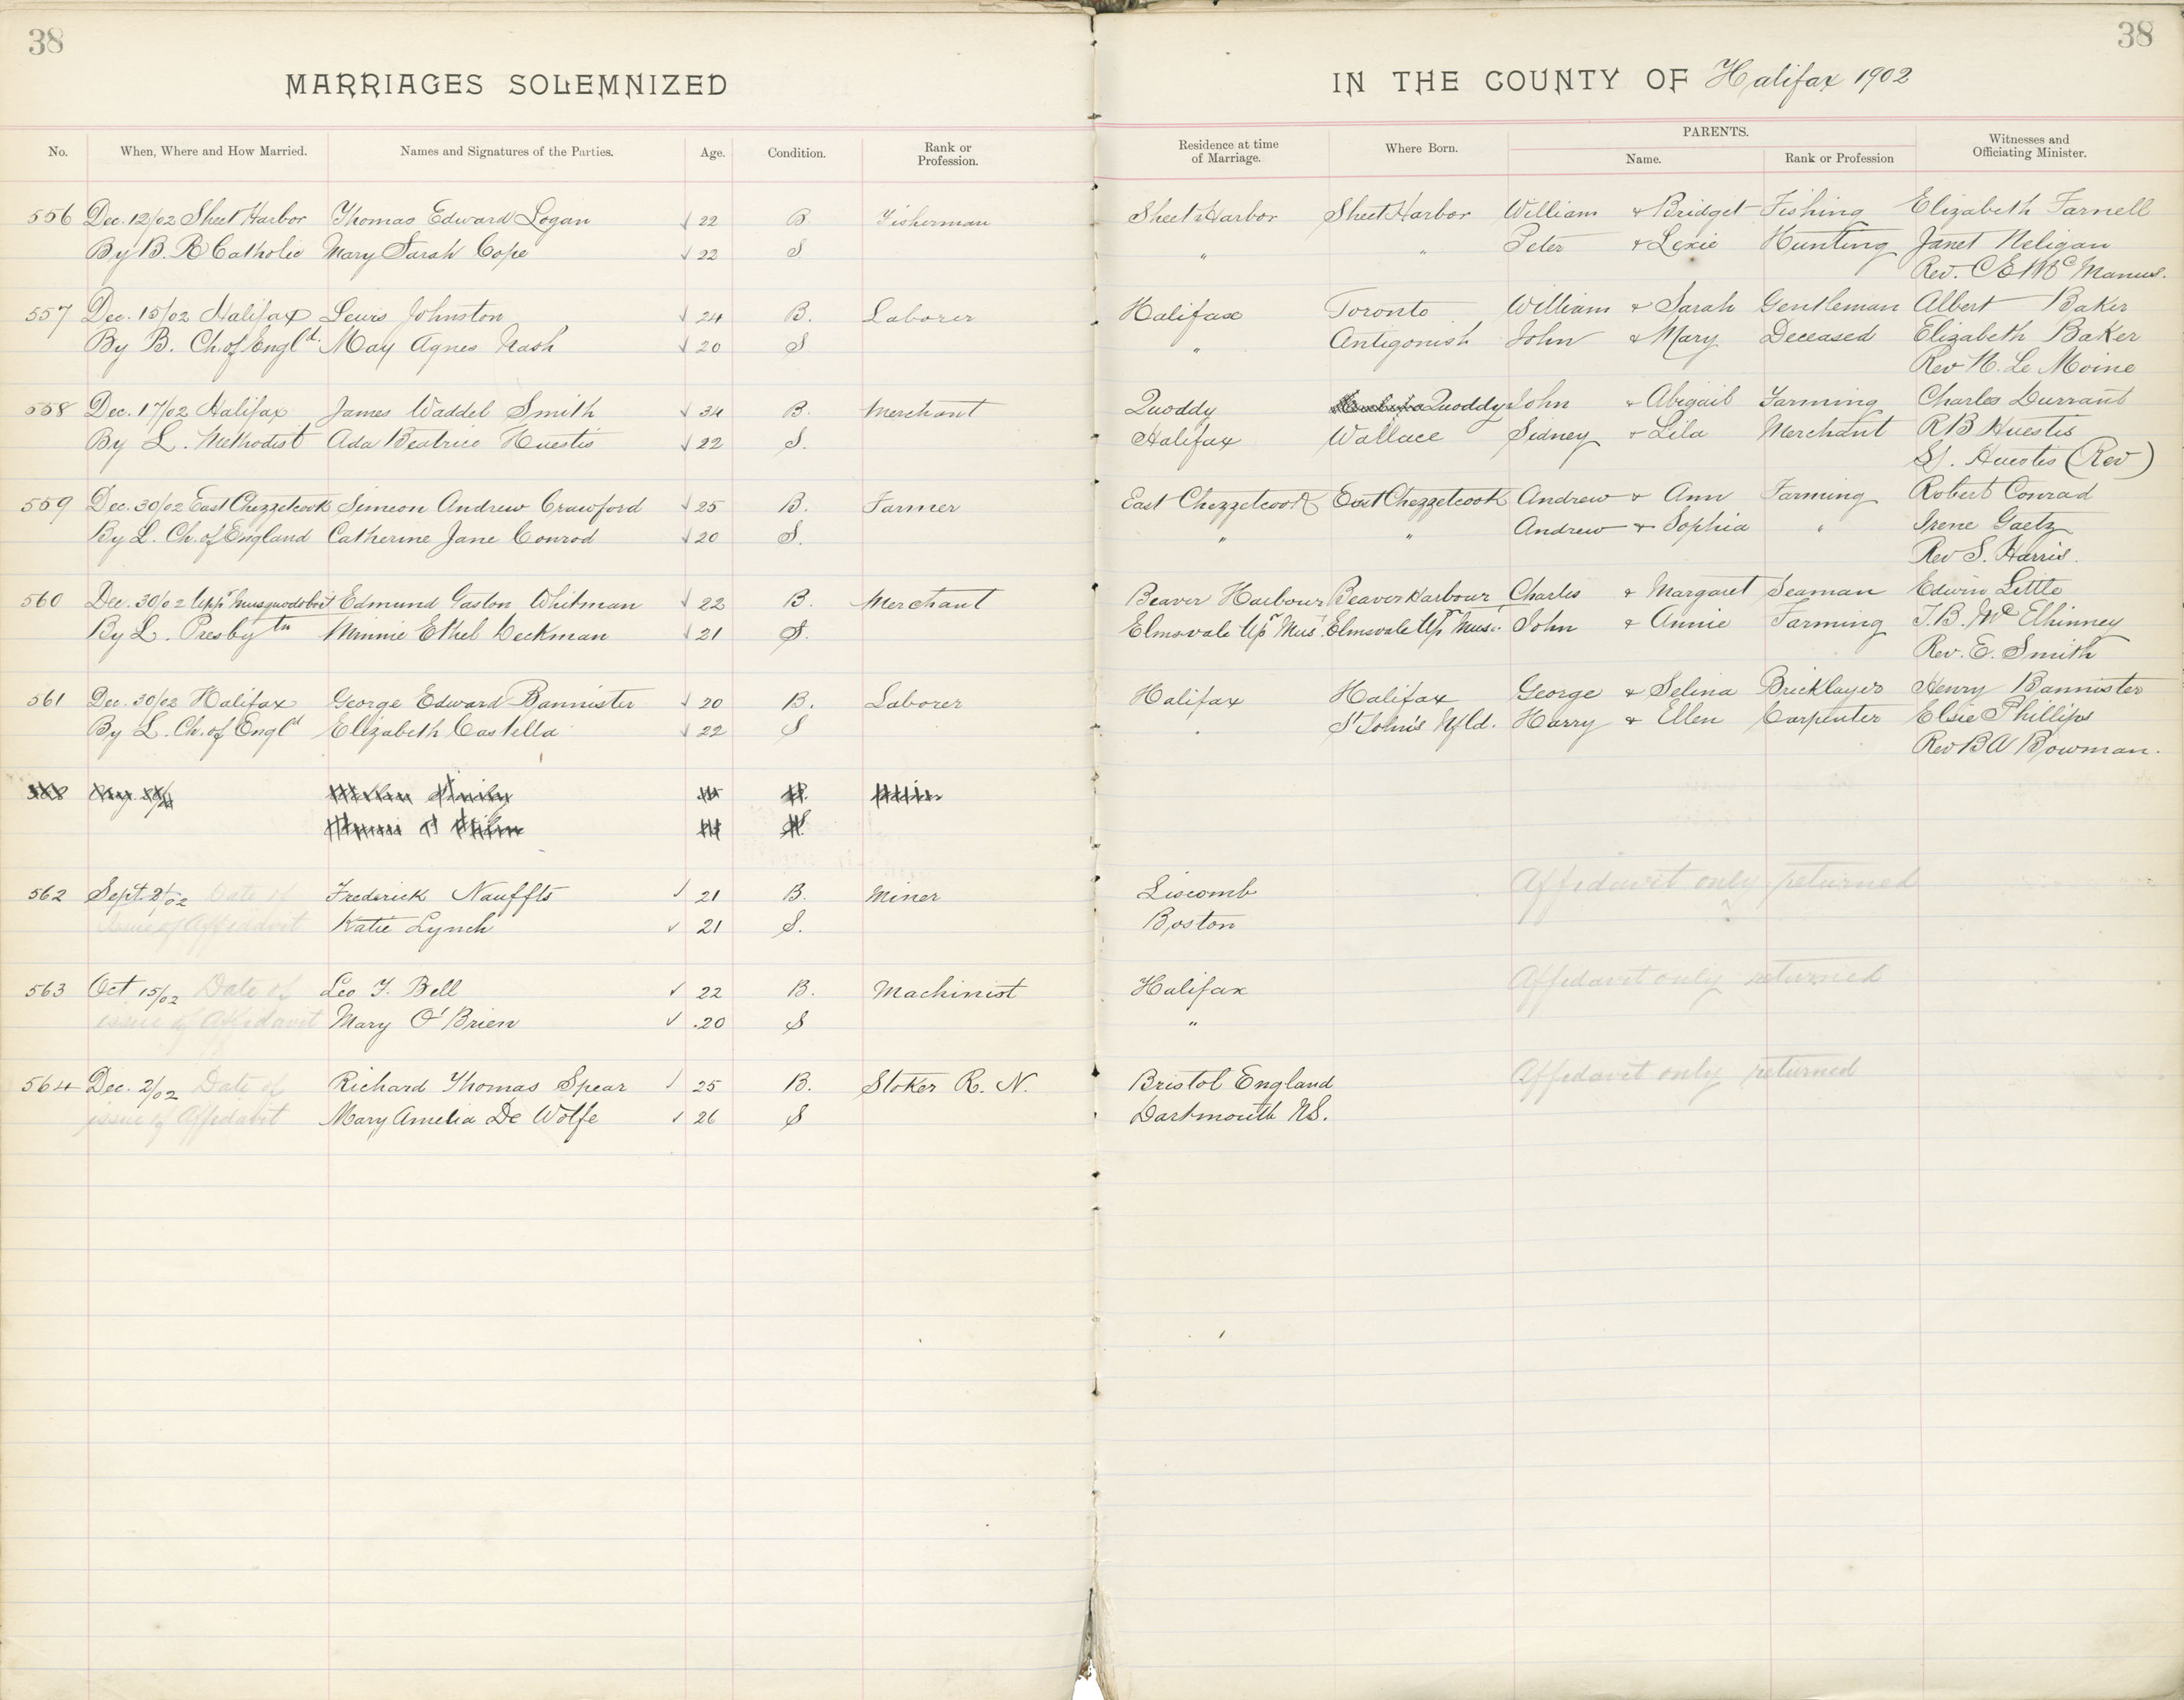 38
38
MARRIAGES SOLEMNIZED IN THE COUNTY OF Halifax 1902
No. When, Where and How Married. Names and Signatures of the Parties. Age. Condition. Rank or Profession. Residence at time of Marriage. Where Born. PARENTS. Name. Rank or Profession Witnesses and Officiating Minister.
556 Dec. 12/02 Sheet Harbor Thomas Edward Logan √ 22 B. Fisherman Sheet Harbor Sheet Harbor William & Bridget Fishing Elizabeth Farnell
By B. R Catholic Mary Sarah Cope √ 22 S " " Peter & Lexie Hunting Janet Neligan
Rev. C E McManus.
557 Dec. 15/02 Halifax Lewis Johnston √ 24 B. Laborer Halifax Toronto William & Sarah Gentleman Albert Baker
By B. Ch. of Engld. May Agnes Nash √ 20 S " Antigonish John & Mary Deceased Elizabeth Baker
Rev N. Le Moine
558 Dec. 17/02 Halifax James Waddel Smith √ 34 B. Merchant Quoddy Quoddy John & Abigail Farming Charles Durrant
By L. Methodist Ada Beatrice Huestis √ 22 S. Halifax Wallace Sidney & Lila Merchant R B Huestis
S. Huestis (Rev)
559 Dec. 30/02 East Chezzetcook Simeon Andrew Crawford √ 25 B. Farmer East Chezzetcook East Chezzetcook Andrew & Ann Farming Robert Conrad
By L. Ch. of England Catherine Jane Conrod √ 20 S. " " Andrew & Sophia " Irene Gaetz
Rev S. Harris.
560 Dec. 30/02 Uppr Musquodoboit Edmund Gaston Whitman √ 22 B. Merchant Beaver Harbour Beaver Harbour Charles & Margaret Seaman Edwin Little
By L. Presbytn Minnie Ethel Deckman √ 21 S. Elmsvale Upr Mus. Elmsvale Upr Mus. John & Annie Farming J. B. McElhinney
Rev. E. Smith
561 Dec. 30/02 Halifax George Edward Bannister √ 20 B. Laborer Halifax Halifax George & Selina Bricklayer Henry Bannister
By L. Ch. of Engld Elizabeth Castella √ 22 S " St John's Nfld. Harry & Ellen Carpenter Elsie Phillips
Rev B A Bowman.
562 Sept. 2/02 Date of Frederick Nauffts √ 21 B. Miner Liscomb Affidavit only returned
Issue of Affidavit Katie Lynch √ 21 S. Boston
563 Oct 15/02 Date of Leo F. Bell √ 22 B. Machinist Halifax Affidavit only returned
issue of Affidavit Mary O'Brien √ 20 S "
564 Dec. 2/02 Date of Richard Thomas Spear √ 25 B. Stoker R. N. Bristol England Affidavit only returned
issue of Affidavit Mary Amelia De Wolfe √ 26 S Dartmouth NS.